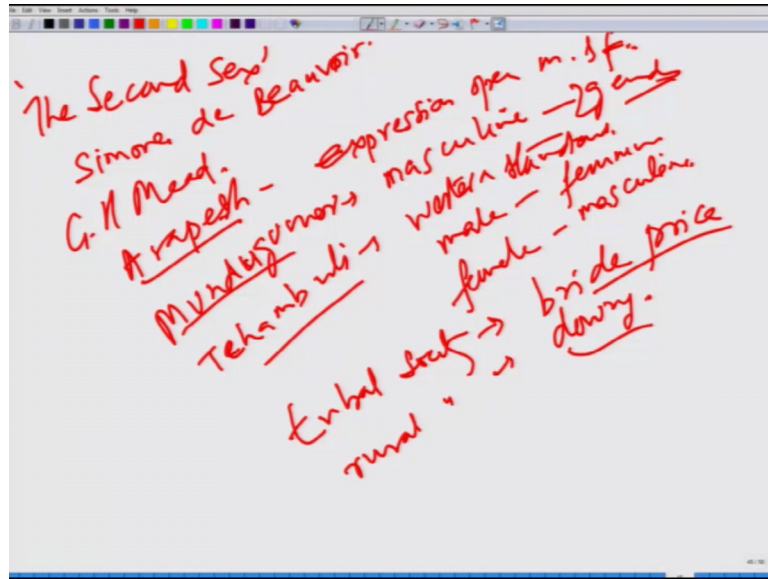 File Edit View Insert Actions Tools Help
'The Second Sex'
Simone de Beauvoir.
G.H Mead.
Arapesh - expression open m. & f.
Mundugumor → masculine - 2 gend
Tchambuli → western standard.
male - feminin
female - masculine.
tribal Society → bride price
rural " → dowry.